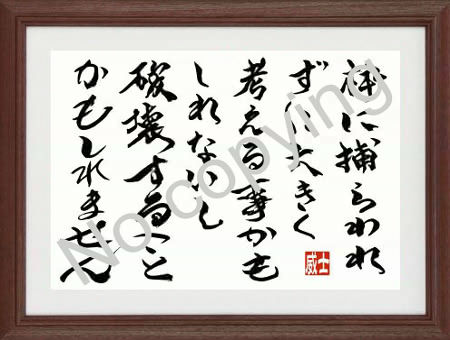 枠に捕らわれ
ずに大きく
考える事かも
しれないし
破壊すること
かもしれません
威士
No copying